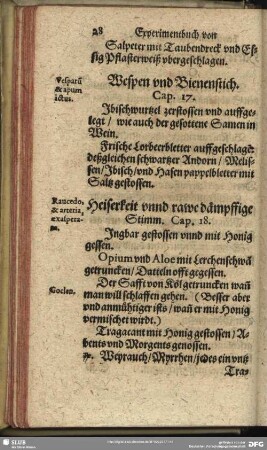 28 Experimentbuch von
Salpeter mit Taubendreck vnd Es-
sig Pflasterweiß vbergeschlagen.
Vesparũ
& apum
ictus.
Wespen vnd Bienenstich.
Cap. 17.
Ibischwurtzel zerstossen vnd auffge-
legt / wie auch der gesottene Samen in
Wein.
Frische Lorbeerbletter auffgeschlagẽ
deßgleichen schwartzer Andorn / Melis-
sen / Ibisch / vnd Hasen pappelbletter mit
Saltz gestossen.
Raucedo,
& arteria,
exaspera-
ta.
Heiserkeit vnnd rawe dämpffige
Stimm. Cap. 18.
Ingbar gestossen vnnd mit Honig
gessen.
Opium vnd Aloe mit Lerchenschwã
getruncken / Datteln offt gegessen.
Coclea.
Der Safft von Köl getruncken wañ
man will schlaffen gehen. (Besser aber
vnd anmühtiger ists / wañ er mit Honig
vermischet wirdt.)
Tragacant mit Honig gestossen / A-
bents vnd Morgents genossen.
Weyrauch / Myrrhen / jedes ein vntz
Tra-
SLUB